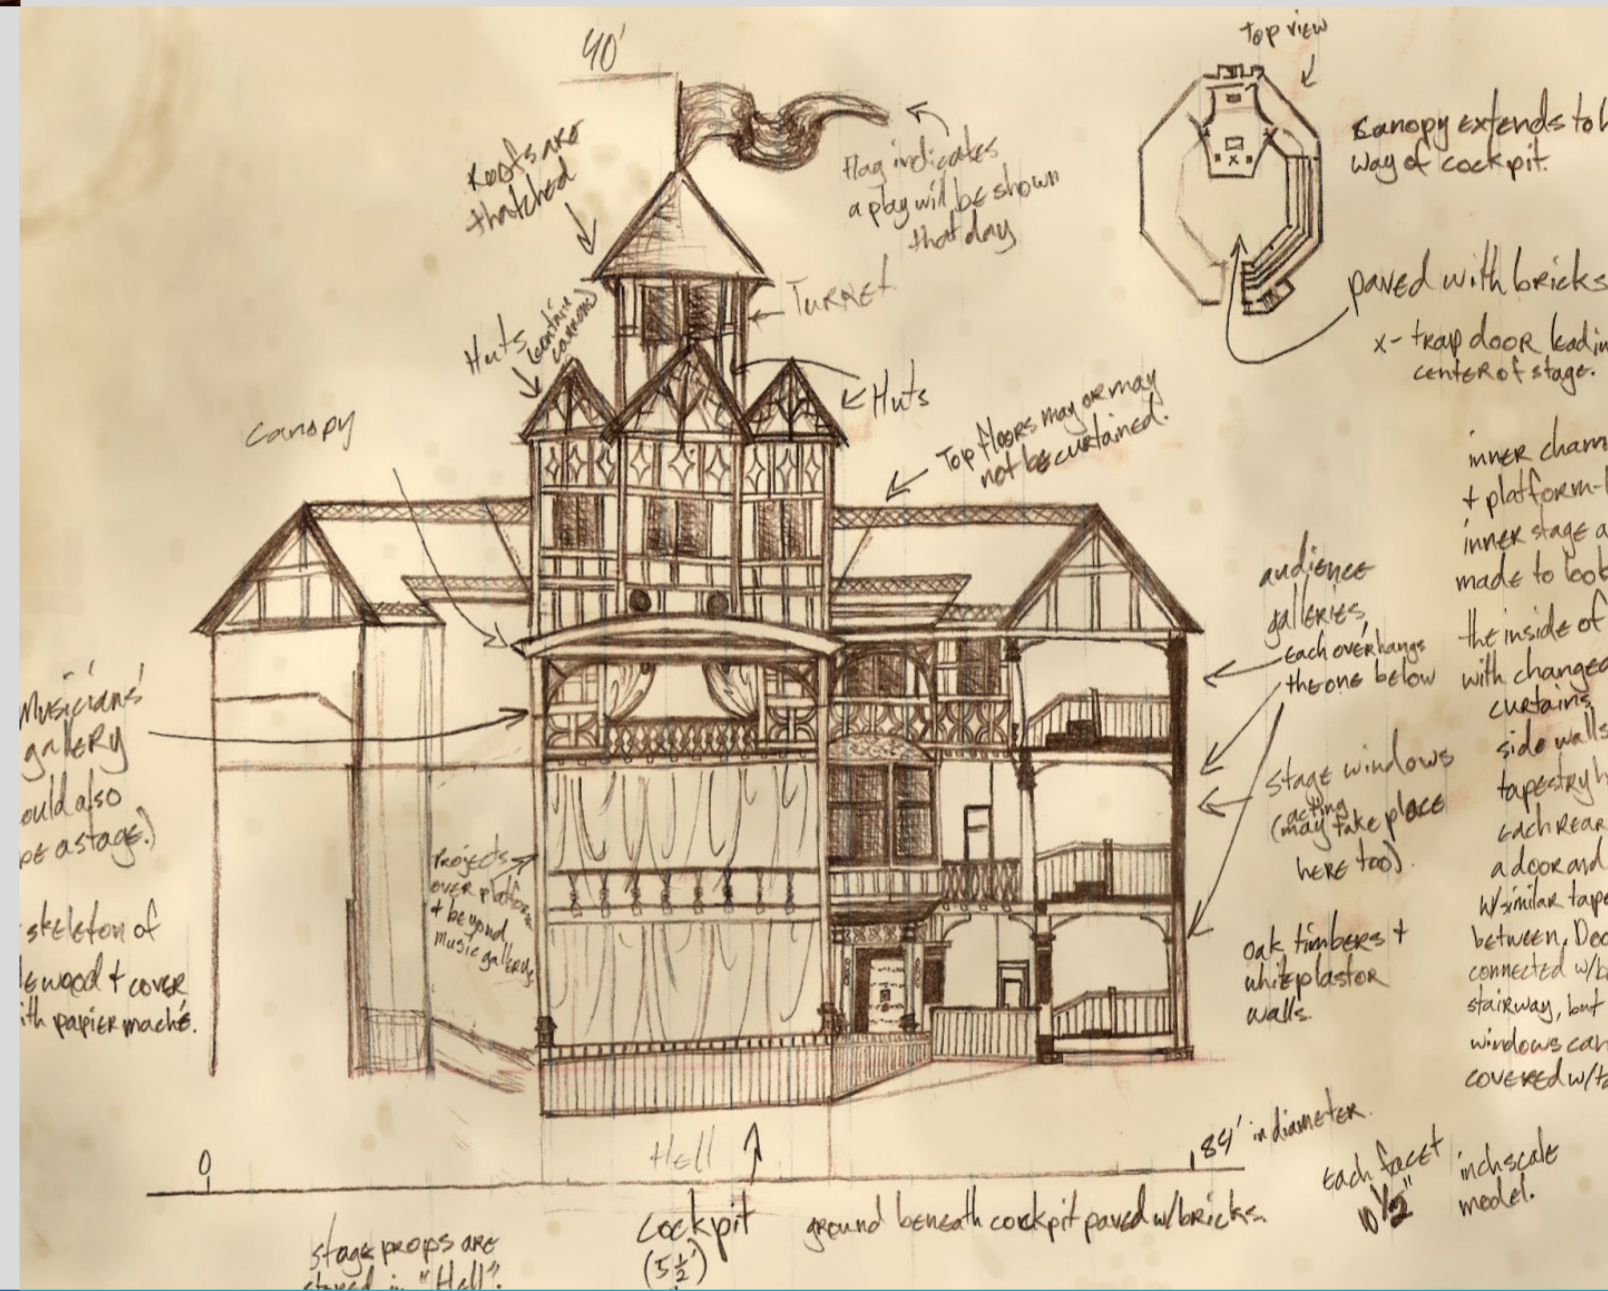 40'
Top view
Roofs are
thatched
flag indicates
a play will be shown
that day
Canopy extends to h
way of cockpit.
paved with bricks
x- trap door leadin
center of stage.
Turret
Huts (contain
cannons)
Huts
Canopy
Top floors may or may
not be curtained.
inner cham
+ platform-
inner stage a
made to look
the inside of
with changed
curtains
side walls
tapestry h
Each rear
a door and
w/similar tape
between, Doo
connected w/b
stairway, but
windows can
covered w/ta
audience
galleries,
each overhangs
the one below
Musicians'
gallery
ould also
be a stage.)
stage windows
(acting
may take place
here too).
Projects
over platform
+ beyond
music gallery
skeleton of
e wood + cover
ith papier maché.
oak timbers +
white plastor
walls.
Hell
0
84' in diameter.
Each facet
10 1/2"
inch scale
model.
cockpit
(5 1/2')
ground beneath cockpit paved w/bricks.
stage props are
stored in "Hell".